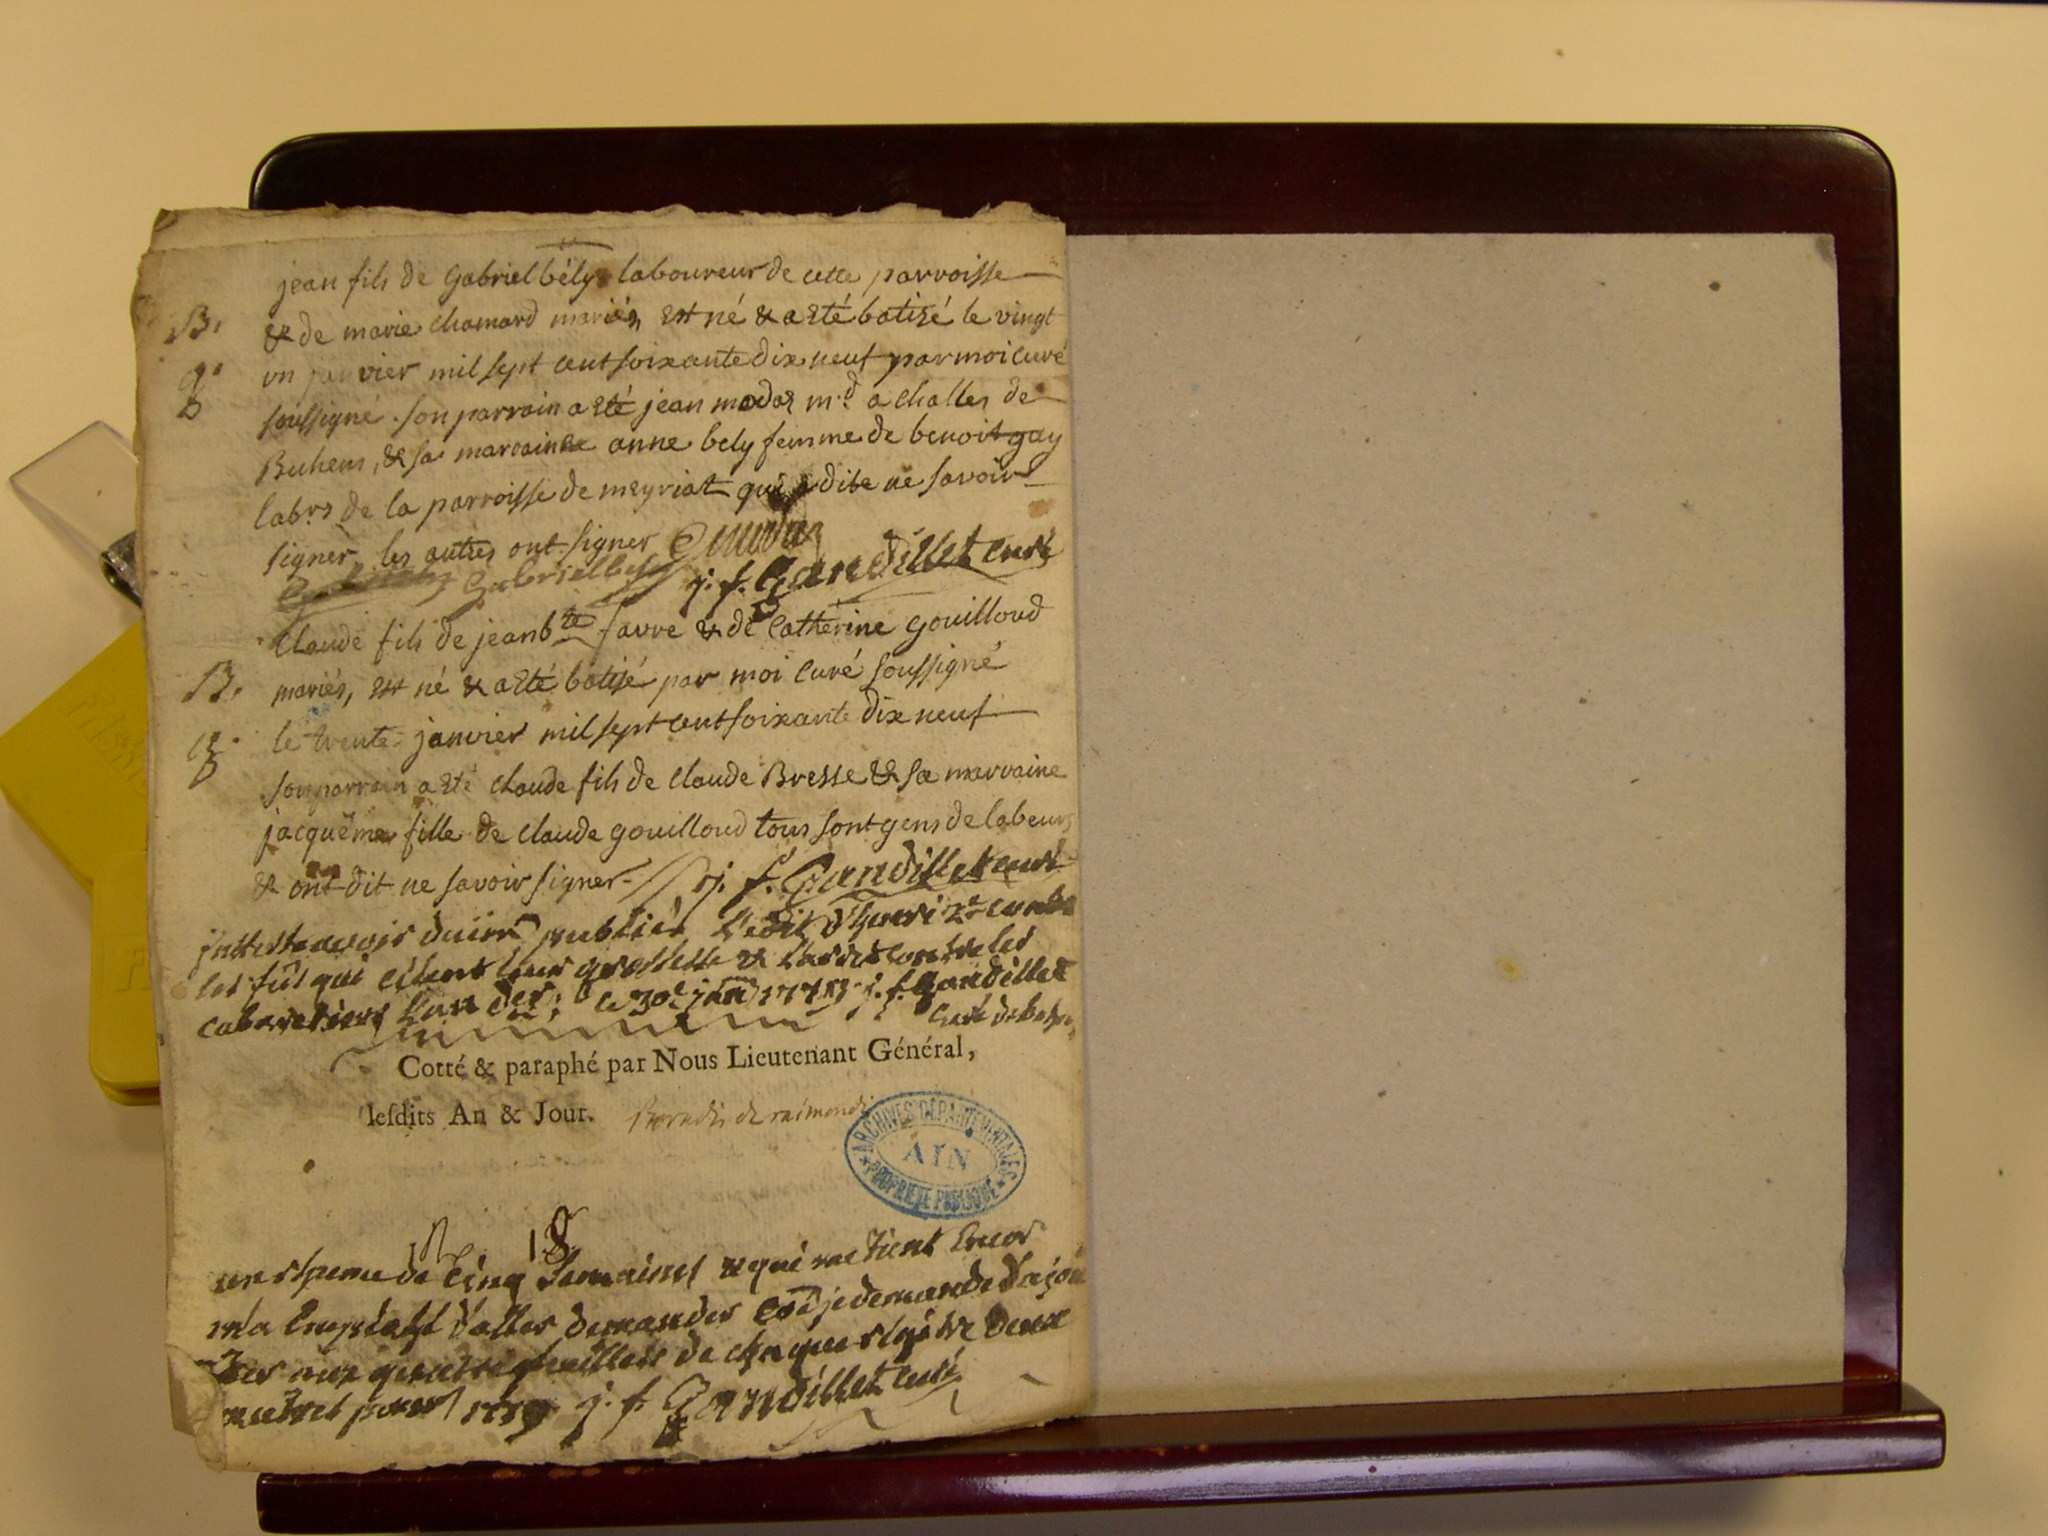 jean fils de Gabriel bély laboureur de cette parroisse
B. & de marie chamard mariés, est né & a eté batizé le vingt
un janvier mil sept cent soixante dix neuf par moi curé
soussigné. son parrain a eté jean m.d a challes de
Buhens, & sa marraine anne bely femme de benoit gay
lab.rs de la parroisse de meyriat qui a dite ne savoir
signer les autres ont signer
Gabriel bely j. f. Gandillet curé
Claude fils de jean b.te favre & de Catherine gouilloud
B. mariés, est né & a eté batisé par moi curé soussigné
le trente janvier mil sept cent soixante dix neuf
son parrain a eté claude fils de claude Bresse & sa marraine
jacquème fille de claude gouilloud tous sont gens de labeurs
& ont dit ne savoir signer. j. f. Gandillet curé
publier l'edit d'henri 2.e contre
les qui celent leur grossesse & l'arret contre les
cabaretiers l'an der: le 30e j. f. Gandillet
Curé de
Cotté & paraphé par Nous Lieutenant Général,
lesdits An & Jour. Paradis de raimondi
ARCHIVES DÉPARTEMENTALES
AIN
PROPRIÉTÉ PUBLIQUE
18
de cinq semaines & qui me tient encor
d'aller demander je demande
de chaque deux
1779 j. f. Gandillet curé